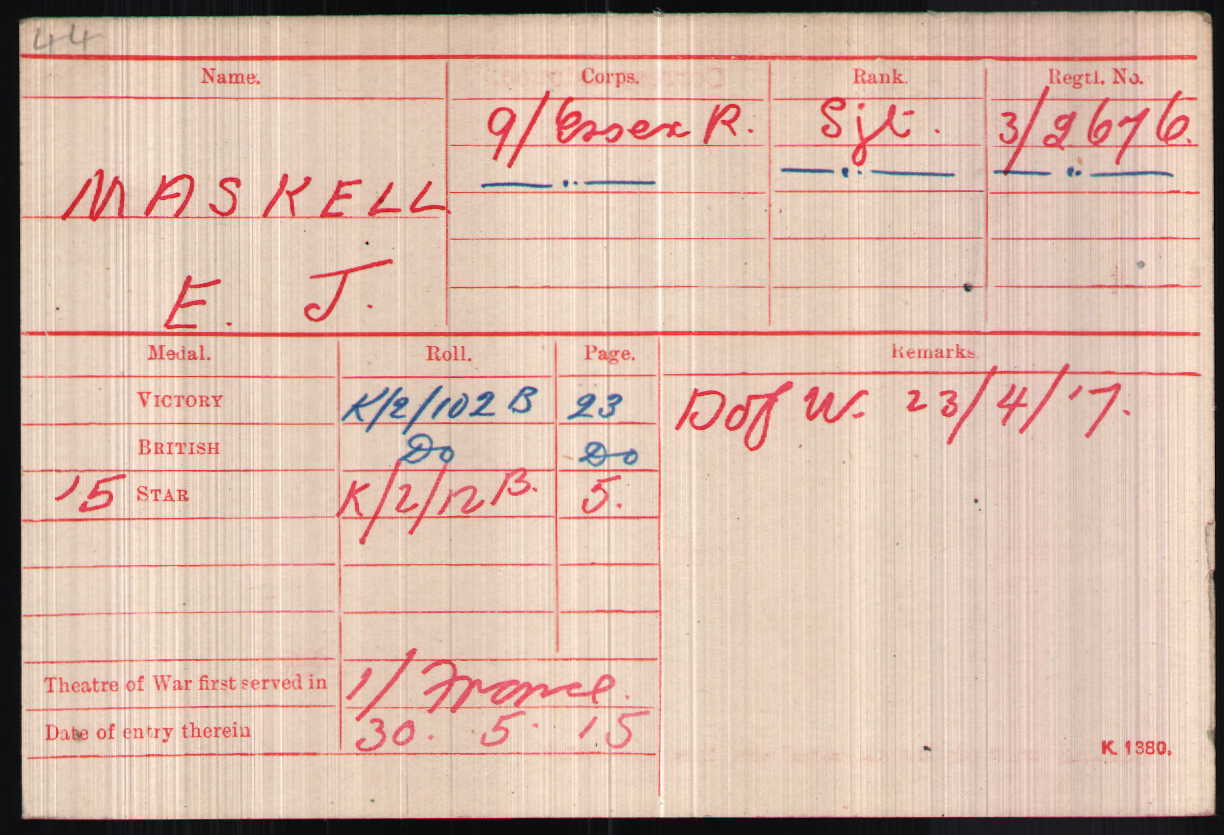 44
Name. Corps. Rank. Regtl. No.
9/Essex R. Sjt. 3/2676.
MASKELL — " — — " — — " —
E. J.
Medal. Roll. Page. Remarks.
VICTORY K/2/102 B 23 D of W. 23/4/'17.
BRITISH Do Do
'15 STAR K/2/12 B. 5.
Theatre of War first served in 1/ France.
Date of entry therein 30. 5. 15
K. 1380.